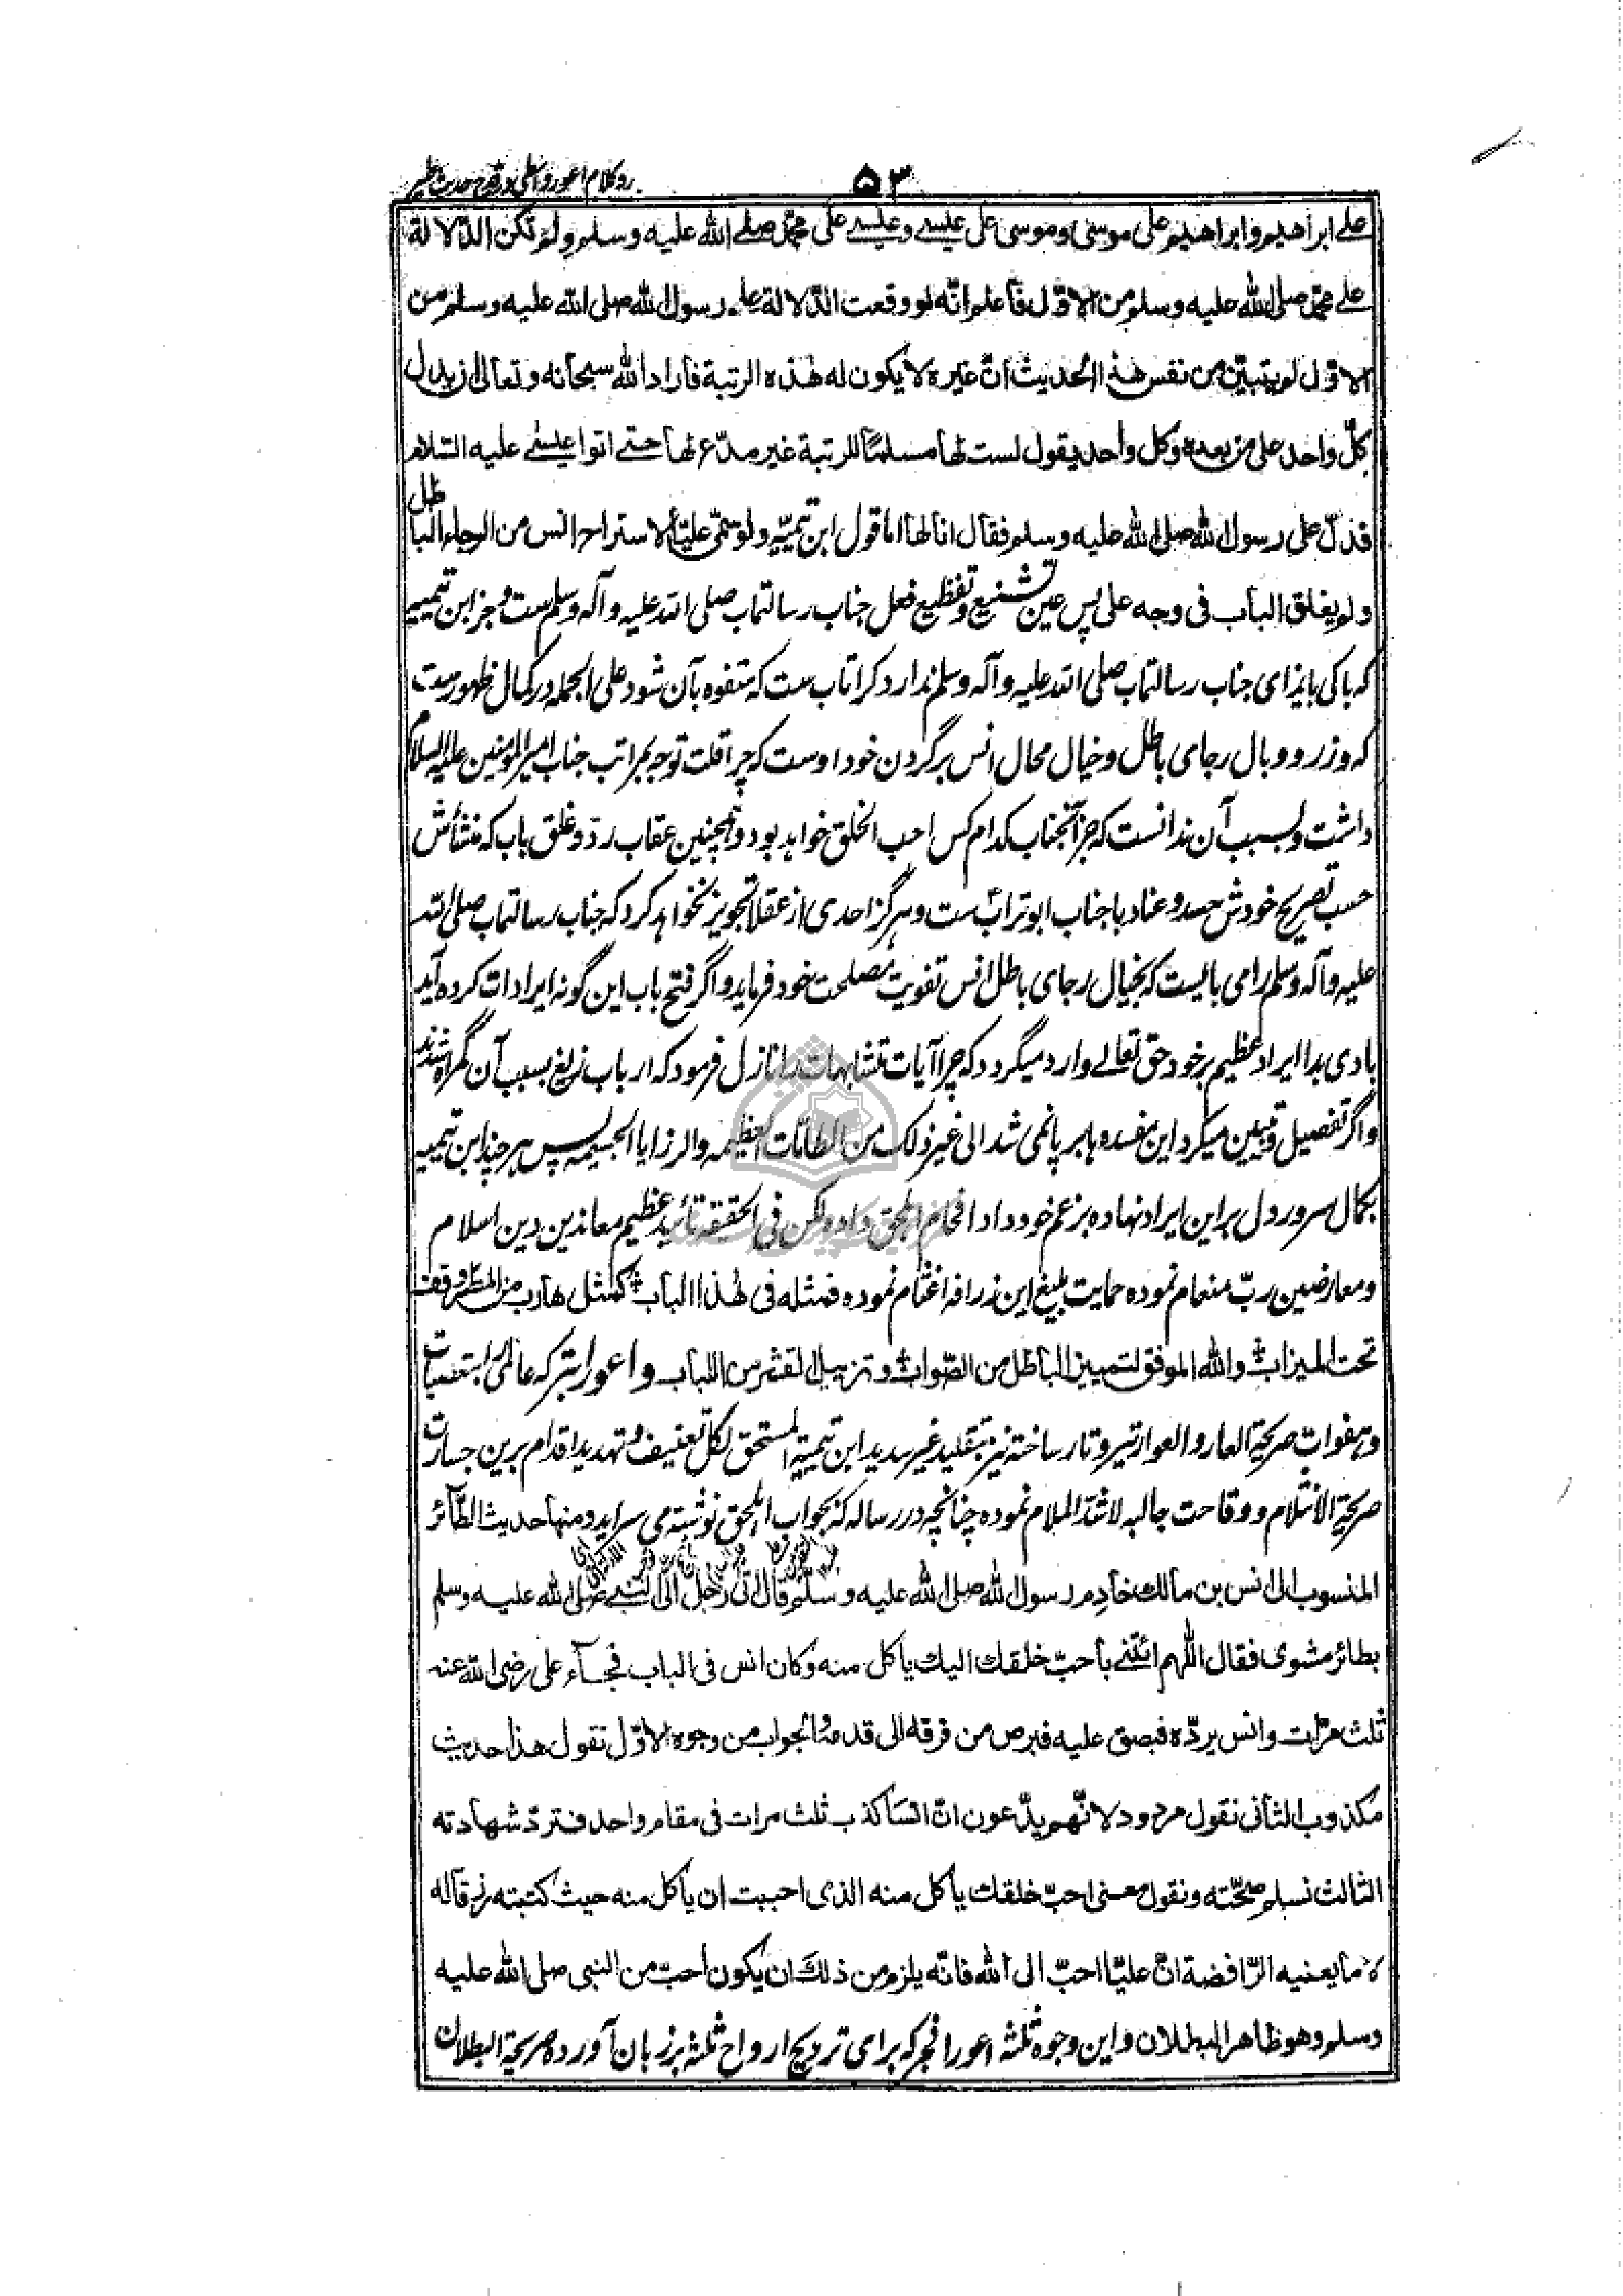 رد کلام اعور واسطی در قدح حدیث طیر
۵۳
علے ابراهیم وابراهیم علی موسی وموسی علی عیسے وعیسے علی محمّد صلے الله علیه وسلم ولم تکن الدّلالة
علے محمّد صلی الله علیه وسلم من الاوّل فأعلم انّه لو وقعت الدّلالة علی رسول الله صلی الله علیه وسلم من
الاوّل لم یتبیّن من نفس هذا الحدیث انّ غیره لا یکون له هذه الرتبة فأراد الله سبحانه وتعالی ان یدل
کلّ واحد علی من بعده وکل واحد یقول لست لها مسلمًا للرتبة غیر مدّع لها حتے اتوا عیسے علیه السّلام
فدلّ علی رسول الله صلی الله علیه وسلم فقال انا لها اما قول ابن تیمیّه ولو سمّی علیّا لاستراح انس من الرجاء الباطل
ولم یغلق الباب فی وجه علی پس عین تشنیع وتفظیع فعل جناب رسالتماب صلی الله علیه وآله وسلم ست وجز ابن تیمیه
که باکی بایذای جناب رسالتماب صلی الله علیه وآله وسلم ندارد کرا تاب ست که متفوه بآن شود علی الجمله در کمال ظهورست
که وزر و وبال رجای باطل وخیال محال انس برگردن خود اوست که چرا قلت توجه بمراتب جناب امیرالمومنین علیه السلام
داشت وبسبب آن ندانست که جز آنجناب کدام کس احب الخلق خواهد بود وهمچنین عقاب ردّ وغلق باب که منشأش
حسب تصریح خودش حسد وعناد با جناب ابوتراب ست وهرگز احدی از عقلا تجویز نخواهد کرد که جناب رسالتماب صلی الله
علیه وآله وسلم را می بایست که بخیال رجای باطل انس تفویت مصلحت خود فرماید واگر فتح باب این گونه ایرادات کرده آید
بادی بدا ایراد عظیم بر خود حق تعالے وارد میگردد که چرا آیات متشابهات را نازل فرمود که ارباب زیغ بسبب آن گمراه شدند
واگر تفصیل وتبیین میکرد این مفسدها برپا نمی شد الی غیر ذلک من الطامّات العظیمه والرزایا الجسیمه پس هر چند ابن تیمیه
بکمال سرور دل بر این ایراد نهاده بزعم خود داد افحام اهل حق داده لکن فی الحقیقه تأیید عظیم معاندین دین اسلام
ومعارضین ربّ منعام نموده حمایت بلیغ این زرافه اغثام نموده فمثله فی هذا الباب کمثل هارب من المطر وقف
تحت المیزاب والله الموفق لتمییز الباطل من الصّواب وتزییل القشر من اللباب واعور ابتر که عالمی را بتعصبات
وهفوات صریحة العار والعوار تیره وتار ساخته نیز بتقلید غیر سدید ابن تیمیة المستحق لکلّ تعنیف وتهدید اقدام برین جسارت
صریحة الانثلام ووقاحت جالبه لاشدّ الملام نموده چنانچه در رساله که بجواب اهل حق نوشته می سراید ومنها حدیث الطّائر
المنسوب الی انس بن مالک خادم رسول الله صلی الله علیه وسلّم قال اتی رجل الی النبے صلی الله علیه وسلم
بطائر مشوی فقال اللهم ائتنے بأحبّ خلقك الیك یأکل منه وکان انس فی الباب فجاء علی رضی الله عنه
ثلث مرّات وانس یردّه فبصق علیه فبرص من فرقه الی قدمه والجواب من وجوه الاوّل نقول هذا حدیث
مکذوب الثانی نقول مردود لانّهم یدّعون انّ انسا کذب ثلث مرات فی مقام واحد فتردّ شهادته
الثالث نسلم صحّته ونقول معنی احبّ خلقك یأکل منه الذی احببت ان یأکل منه حیث کتبته رزقا له
لا ما یعنیه الرّافضة انّ علیّا احبّ الی الله فانّه یلزم من ذلك ان یکون احبّ من النبی صلی الله علیه
وسلم وهو ظاهر البطلان واین وجوه ثلثه اعور افجر که برای ترویح ارواح ثلثه بر زبان آورده صریحة البطلان